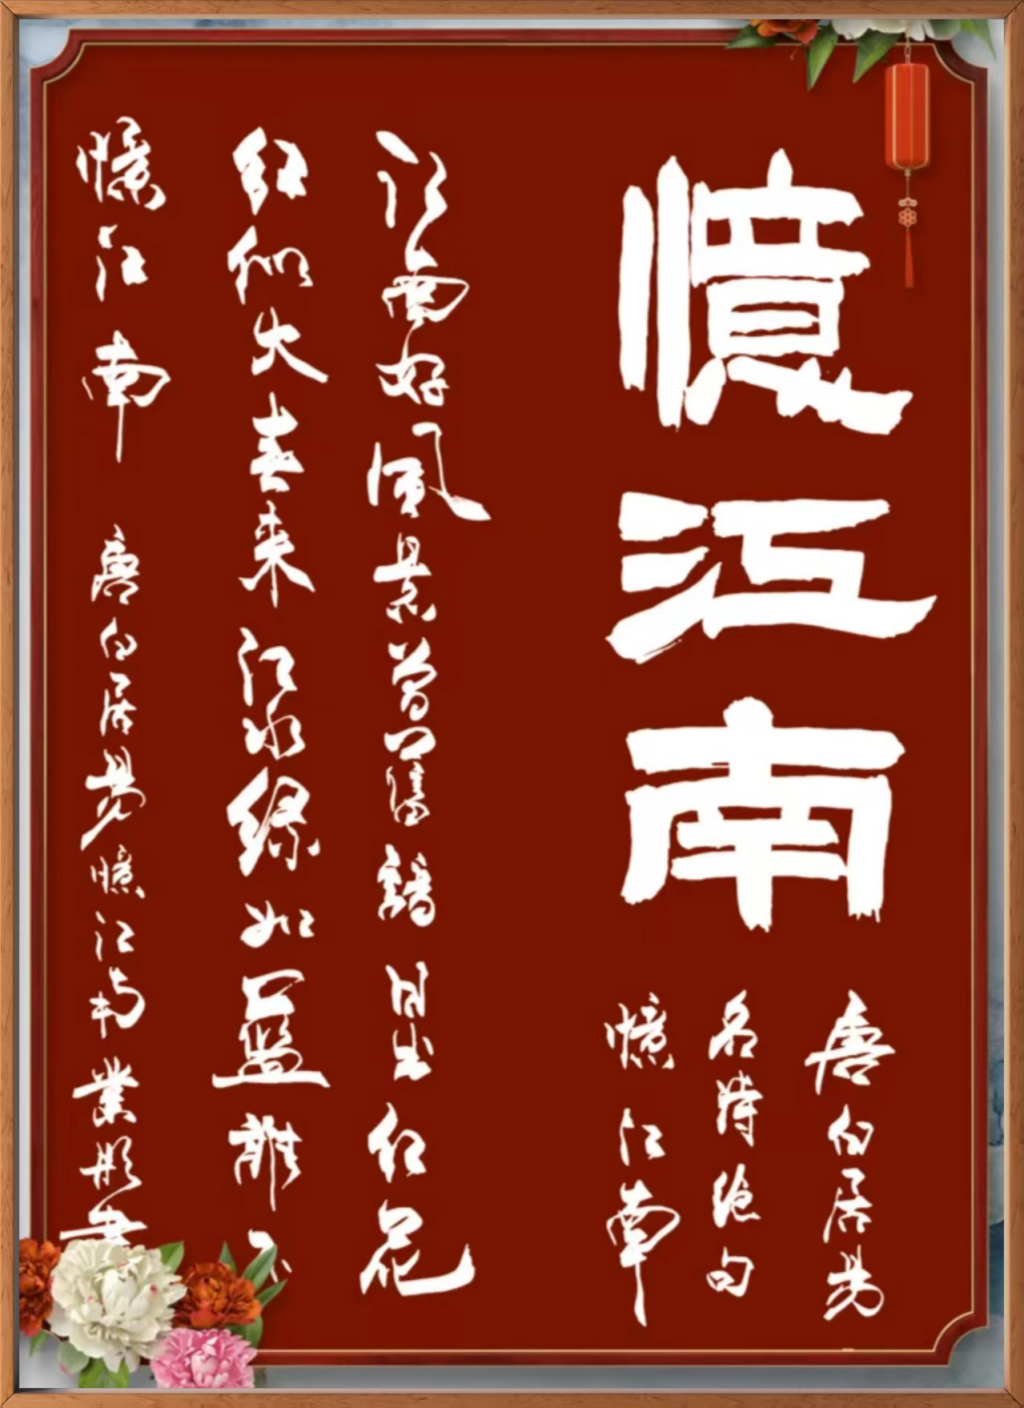 憶江南
唐白居易
名詩絶句
憶江南
江南好風景曾舊諳日出江花
紅似火春来江水綠如藍能不
憶江南 唐白居易憶江南業彤書